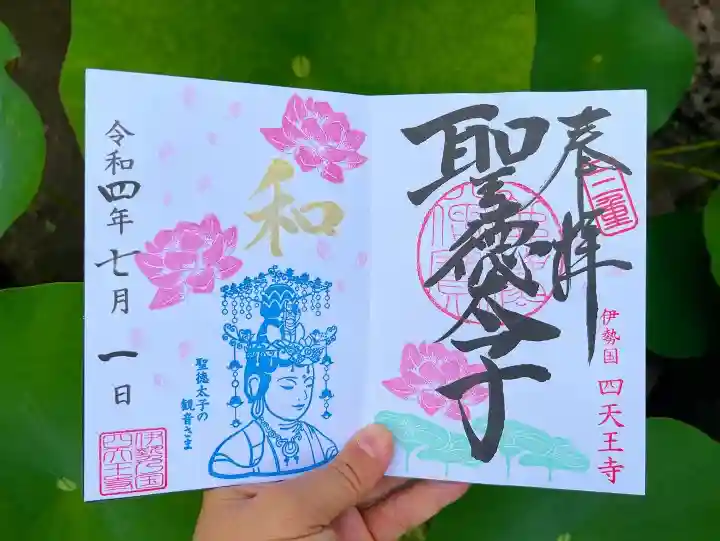 奉拝
三重
伊勢国 四天王寺
聖徳太子
和
聖徳太子の
観音さま
令和四年七月一日
伊勢国
四天王寺